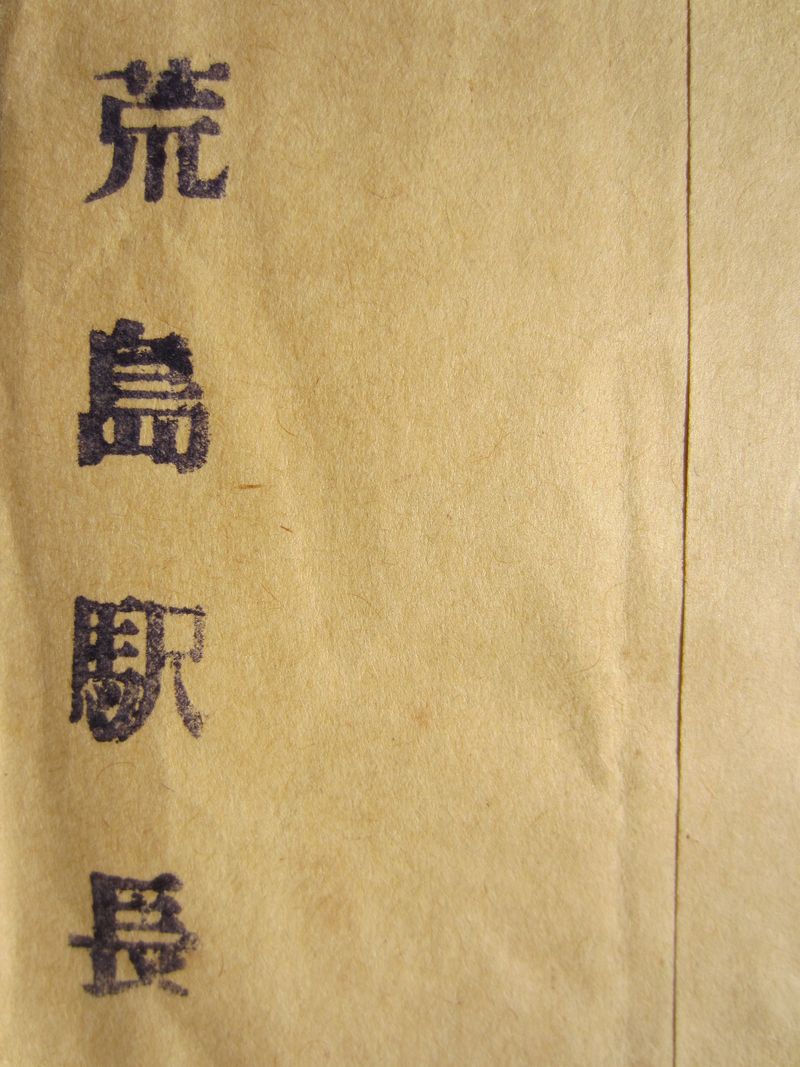 荒島駅長